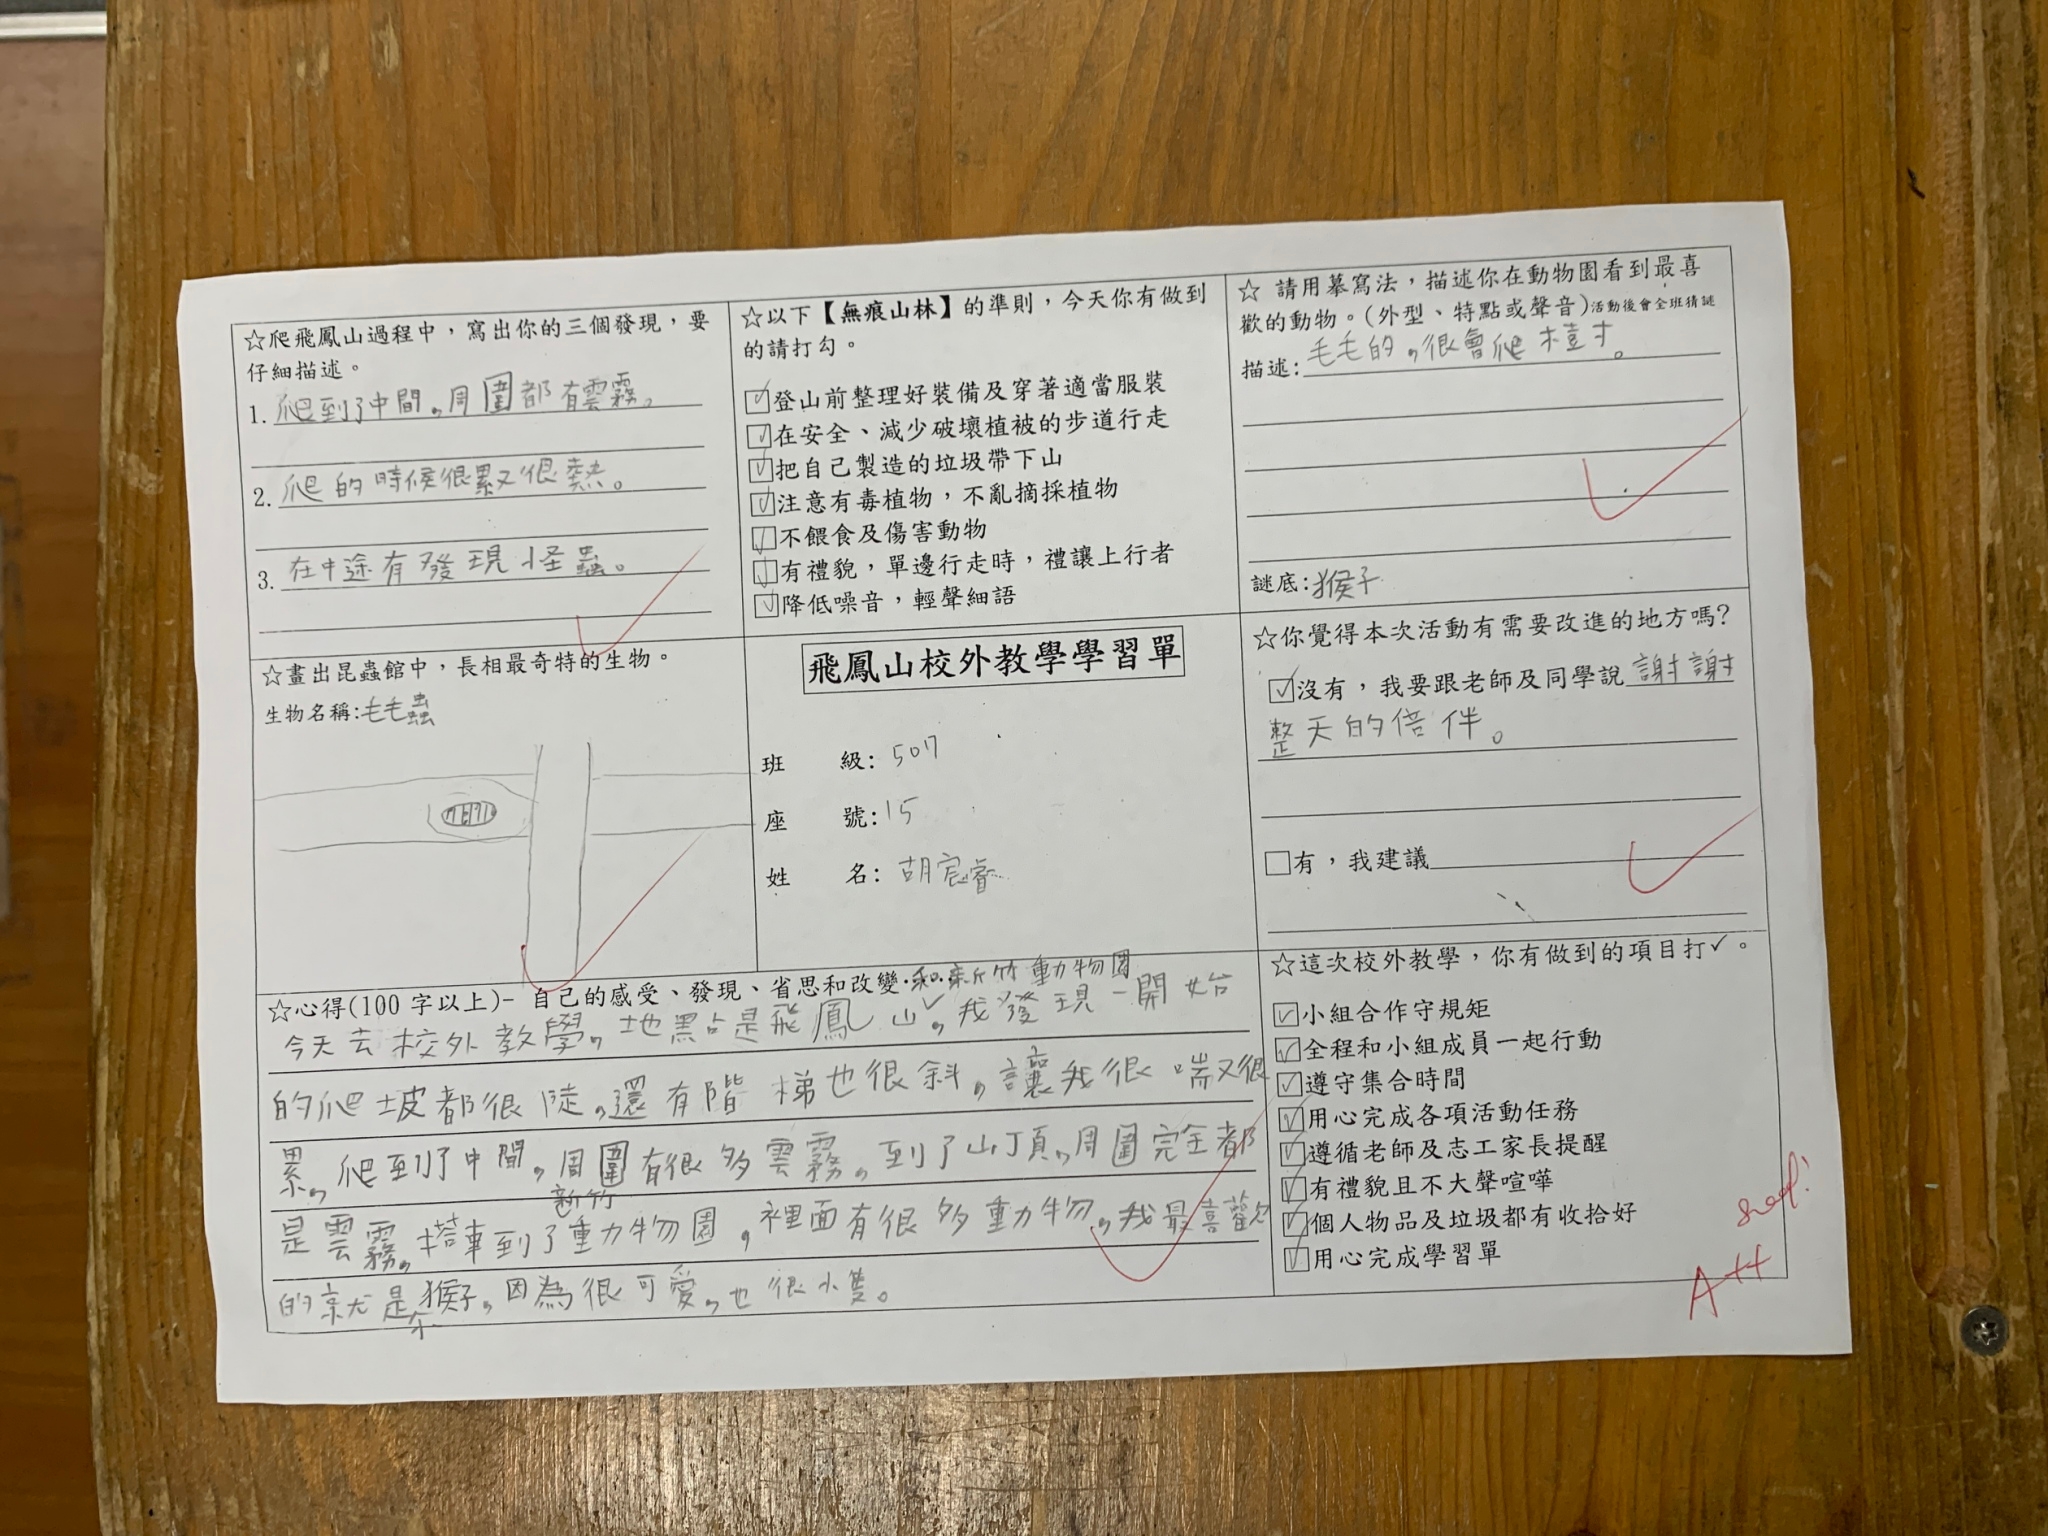 ☆爬飛鳳山過程中，寫出你的三個發現，要
仔細描述。
1. 爬到了中間，周圍都有雲霧。
2. 爬的時候很累又很熱。
3. 在中途有發現怪蟲。
☆以下【無痕山林】的準則，今天你有做到
的請打勾。
☑登山前整理好裝備及穿著適當服裝
☑在安全、減少破壞植被的步道行走
☑把自己製造的垃圾帶下山
☑注意有毒植物，不亂摘採植物
☑不餵食及傷害動物
☑有禮貌，單邊行走時，禮讓上行者
☑降低噪音，輕聲細語
☆ 請用摹寫法，描述你在動物園看到最喜
歡的動物。(外型、特點或聲音)活動後會全班猜謎
描述:毛毛的，很會爬樹。
謎底:猴子
☆畫出昆蟲館中，長相最奇特的生物。
生物名稱:毛毛蟲
飛鳳山校外教學學習單
班 級: 507
座 號:15
姓 名: 胡宸睿
☆你覺得本次活動有需要改進的地方嗎?
☑沒有，我要跟老師及同學說 謝謝
整天的倍伴。
□有，我建議
☆心得(100字以上)- 自己的感受、發現、省思和改變.
和新竹動物園
今天去校外教學，地點是飛鳳山，我發現一開始
的爬坡都很陡，還有階梯也很斜，讓我很喘又很
累，爬到了中間，周圍有很多雲霧，到了山頂，周圍完全都
新竹
是雲霧，搭車到了動物園，裡面有很多動物，我最喜歡
的就是猴子，因為很可愛，也很小隻。
☆這次校外教學，你有做到的項目打✓。
☑小組合作守規矩
☑全程和小組成員一起行動
☑遵守集合時間
☑用心完成各項活動任務
☑遵循老師及志工家長提醒
☑有禮貌且不大聲喧嘩
☑個人物品及垃圾都有收拾好
☑用心完成學習單
A++